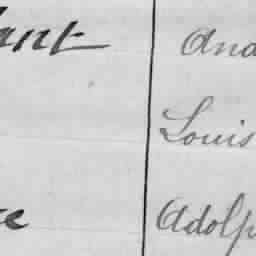 ant And
Louis
e Adolp